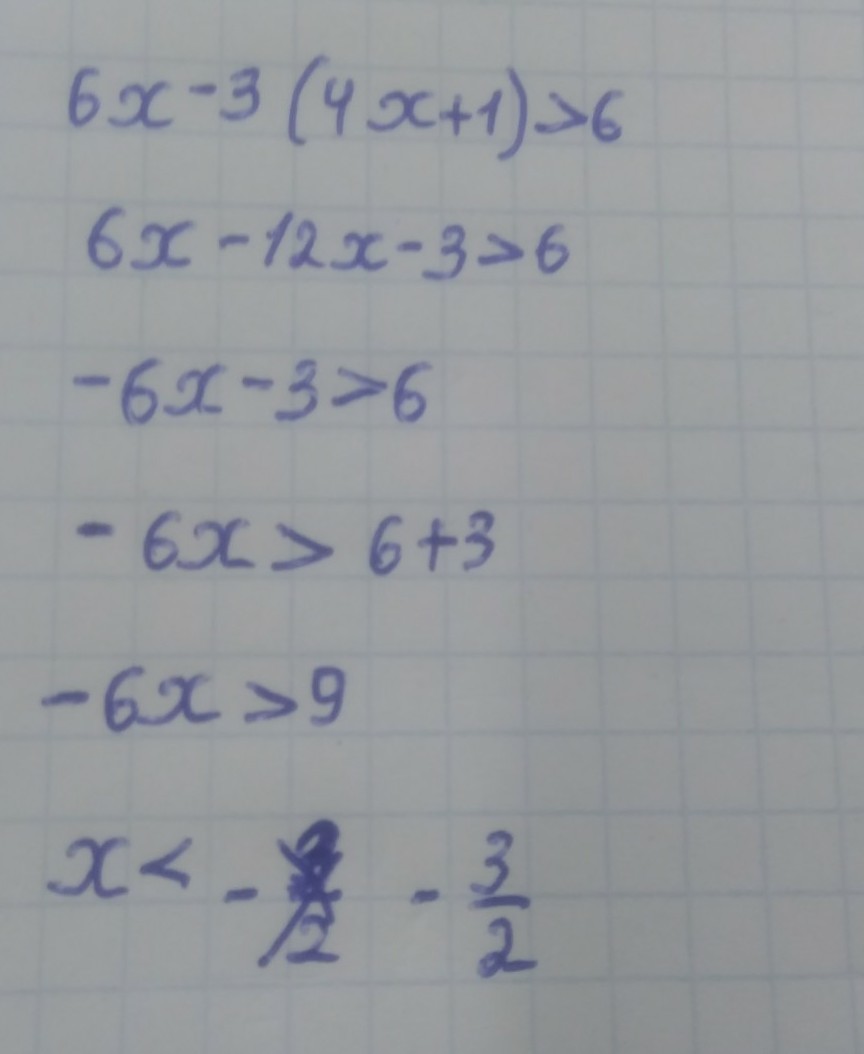 6x-3(4x+1)>6
6x-12x-3>6
-6x-3>6
-6x>6+3
-6x>9
x< - - 3/2